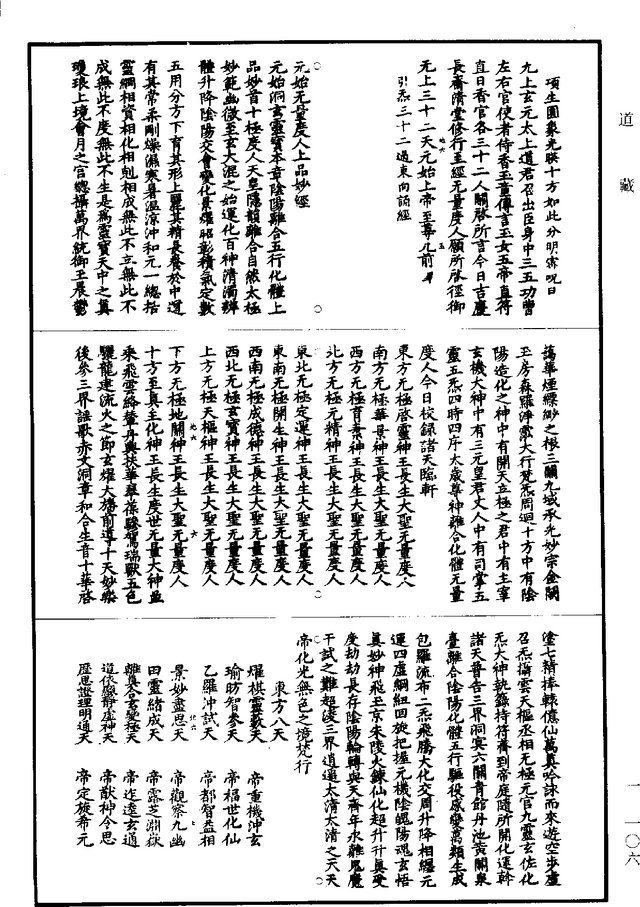 道藏
項生圓象光映十方如此分明密呪曰
九上玄元太上道君召出臣身中三五功曹
左右官使者侍香玉童傳言玉女五帝直符
直日香官各三十二人關啓所言今日吉慶
長齋清堂修行至經无量度人願所啓徑御
元上三十二天元始上帝至尊几前畢
引炁三十二過東向誦經
元始无量度人上品妙經
元始洞玄靈寶本章陰陽離合五行化體上
品妙首十極度人天皇隱韻離合自然太極
妙範幽微至玄大混之始運化百神清濁辨
體升降陰陽交會變化景燿昭彰積氣定數
五用分方下育其形上麗其精長養於中道
有其常柔剛燥濕寒暑溫涼沖和元一總括
靈綱相資相化相剋相成無此不立無此不
成無此不度無此不生是爲靈寶天中之眞
瓊琅上境會月之宫總攝萬界統御玉晨鬱
藹華煙繚紗之根三關九域承光妙宗金闕
玉房森羅淨雲大行梵炁周迴十方中有陰
陽造化之神中有開天立極之君中有主宰
玄機大神中有三元皇君丈人中有司掌五
靈五炁四時四序太歲尊神離合化體无量
度人今日校録諸天臨軒
東方无極啓靈神王長生大聖无量度人
南方无極華景神王長生大聖无量度人
西方无極育素神王長生大聖无量度人
北方无極元精神王長生大聖无量度人
東北无極定運神王長生大聖无量度人
東南无極開生神王長生大聖无量度人
西南无極成德神王長生大聖无量度人
西北无極玄寶神王長生大聖无量度人
上方无極天樞神王長生大聖无量度人
下方无極地關神王長生大聖无量度人
十方至眞主化神王長生度世无量大神並
乘飛雲絡軿丹輿扶華翠葆驂駕瑞獸五色
驪龍建流火之節玄燿大旛前導十天妙樂
後參三界謡歌赤文洞章和合生音十華啓
塗七辯捧轅億仙萬眞吟詠而來遊空步虛
召炁攝雲天樞丞相无極元官九靈玄佐化
炁大神執籙持符齎到帝庭隨所開化運幹
諸天普告三界洞寞六關青館丹池黄關泉
臺離合陰陽化體五行驅役感變萬類生成
包羅流布二炁飛騰大化交周升降相纒元
運四虛綱紐回旋把握元機陰魄陽魂玄悟
眞妙神飛玉京朱陵火鍊仙化超升升眞受
度劫劫長存陰陽輪轉與天齊年永離鬼魔
干試之難超淩三界逍遥太清太清之天天
帝化光無色之境梵行
東方八天
燿棋靈數天　帝重機沖玄
瑜昉智參天　帝福世化仙
乙羅沖試天　帝都智盈相
景妙盡思天　帝觀察九幽
田靈緒成天　帝露芝淵嶽
離眞合玄變極天　帝迮逵玄通
道依顯靜虛神天　帝猷神令思
歷思證理明通天　帝定旋希元
一一〇六